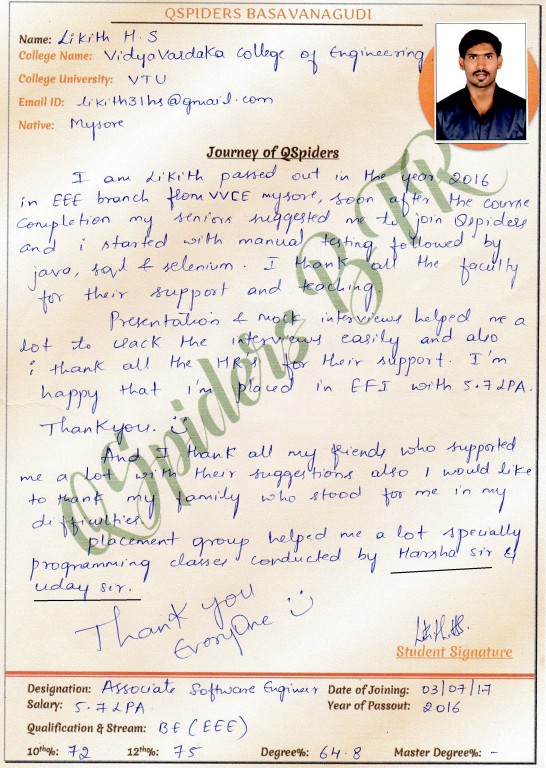 QSPIDERS BASAVANAGUDI
Name: Likith H.S
College Name: VidyaVardaka College of Engineering.
College University: VTU
Email ID: likith31hs@gmail.com
Native: Mysore
Journey of QSpiders
I am Likith passed out in the year 2016
in EEE branch from VVCE mysore, soon after the course
completion my seniors suggested me to join Qspiders
and i started with manual testing followed by
java, sql & selenium. I thank all the faculty
for their support and teaching.
Presentation & mock interviews helped me a
lot to crack the interviews easily and also
i thank all the HR's for their support. I'm
happy that I'm placed in EFI with 5.7LPA.
Thankyou. :)
And I thank all my friends who supported
me a lot with their suggestions also I would like
to thank my family who stood for me in my
difficulties.
placement group helped me a lot specially
programming classes conducted by Harsha sir &
uday sir.
Thank you
EveryOne :)
Likith.H.S.
Student Signature
QSpiders BTR
Designation: Associate Software Engineer Date of Joining: 03/07/17
Salary: 5.7LPA Year of Passout: 2016
Qualification & Stream: BE (EEE)
10th%: 72 12th%: 75 Degree%: 64.8 Master Degree%: -